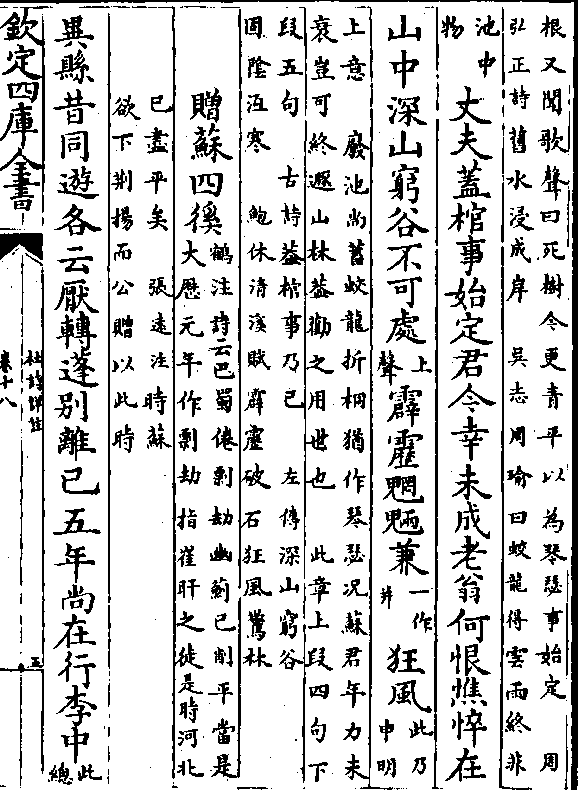 根又聞歌聲曰死樹今更青平以為琴瑟事始定　周
弘正詩舊水浸成岸　吳志周瑜曰蛟龍得雲雨終非
池中
物
丈夫蓋棺事始定君今幸未成老翁何恨憔悴在
山中深山窮谷不可處
上
聲
霹靂魍魎兼
一作
并
狂風
此乃
申明
上意　廢池尚蓄蛟龍折桐猶作琴瑟況蘇君年力未
衰豈可終遯山林蓋勸之用世也　此章上段四句下
段五句　古詩蓋棺事乃已　左傳深山窮谷
固陰沍寒　鮑休清溪賦霹靂破石狂風驚林
贈蘇四徯
鶴注詩云巴蜀倦剽劫幽薊已削平當是
大厯元年作剽劫指崔旰之徒是時河北
已盡平矣　張遠注時蘇
欲下荆揚而公贈以此詩
異縣昔同遊各云厭轉蓬别離已五年尚在行李中
此
總
欽定四庫全書
杜詩詳註
卷十八
五